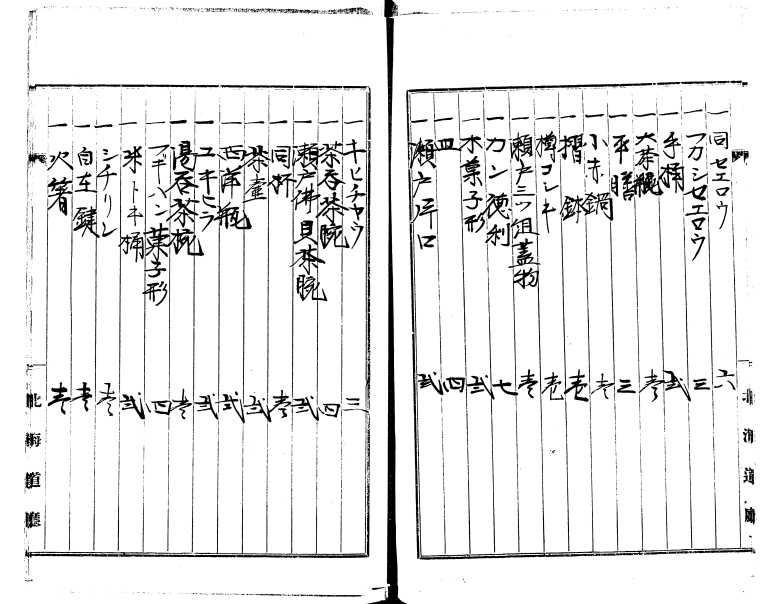 一同セエロウ 六
一フカシセエロウ 三
一手桶 弐
一大茶碗 壱
一平膳 三
一小赤鍋 壱
一摺鉢 壱
一樽コシキ 壱
一瀬戸三ツ組蓋物 壱
一カン徳利 七
一木菓子形 弐
一皿 四
一瀬戸片口 弐
北海道庁
一キヒチヤウ 三
一茶呑茶碗 四
一瀬戸佛具茶碗 弐
一同杯 壱
一茶壷 弐
一西洋瓶 弐
一ユキヒラ 弐
一湯呑茶碗 壱
一フキハン菓子形 四
一米トキ桶 弐
一シチリン 壱
一自在鍵 壱
一火箸 壱
北海道廳